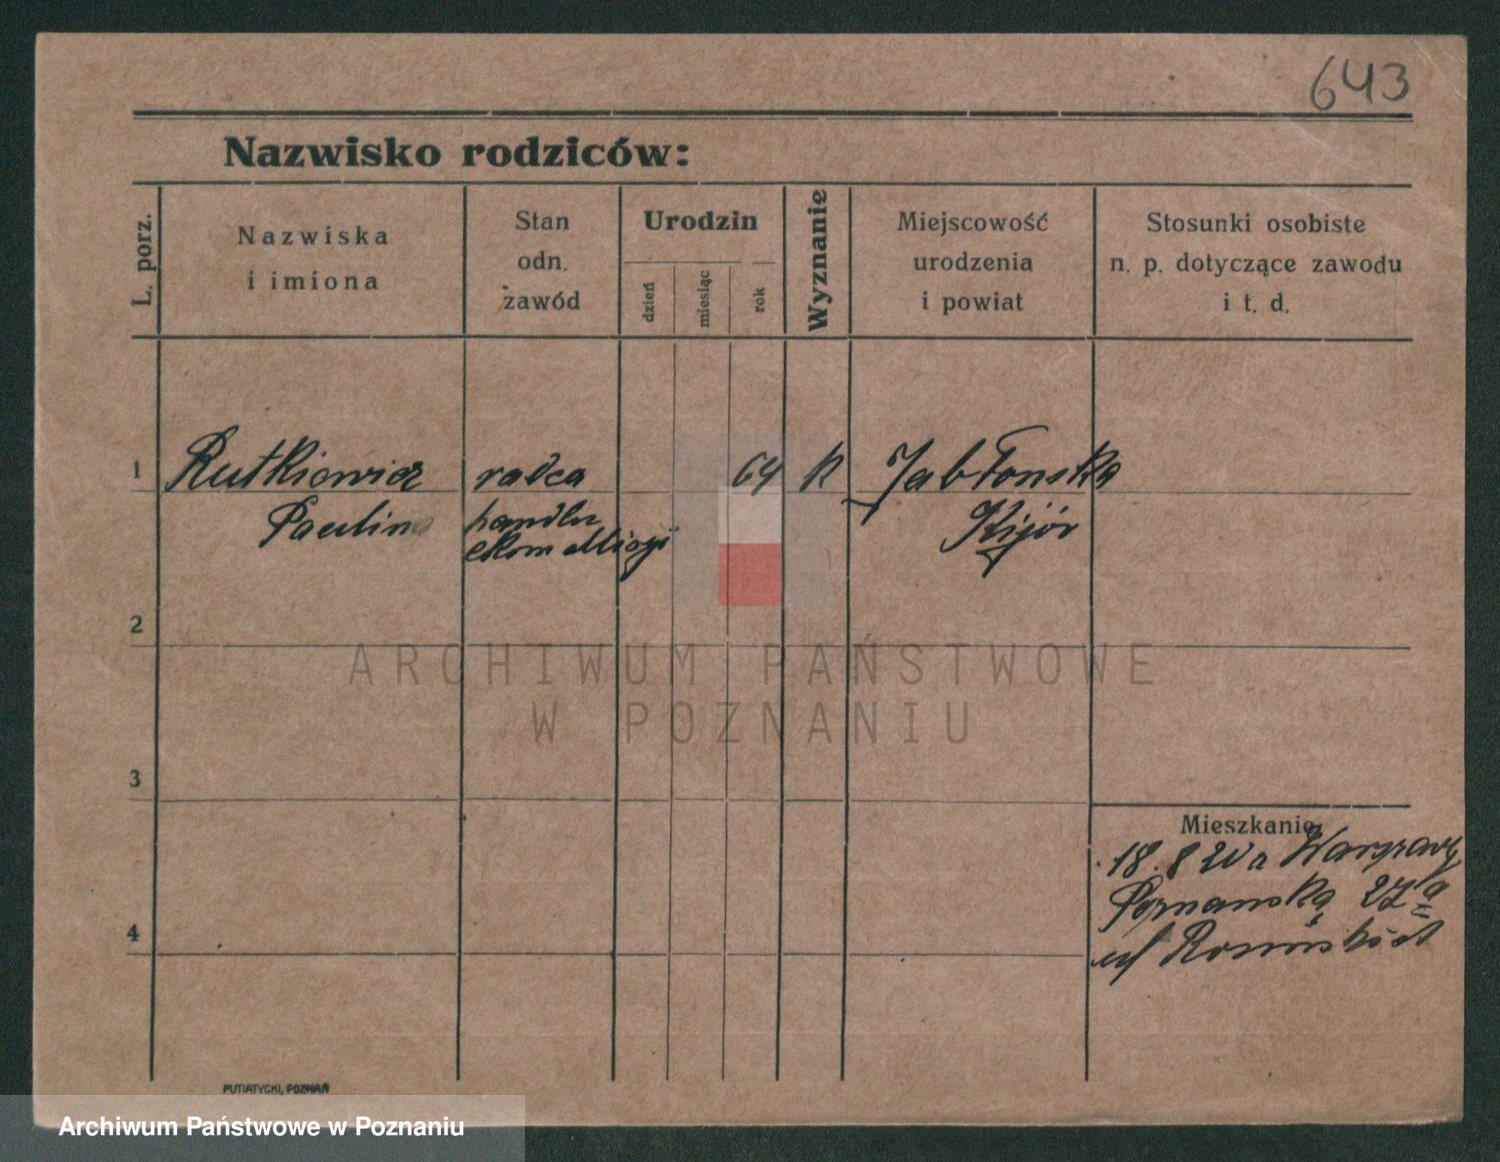 643
Nazwisko rodziców:
L. porz.
Nazwiska
i imiona
Stan
odn.
zawód
Urodzin
dzień
miesiąc
rok
Wyznanie
Miejscowość
urodzenia
i powiat
Stosunki osobiste
n. p. dotyczące zawodu
i t. d.
1 Rutkiewicz radca 64 K Jabłonska
Paulina handlu Kijów
ekom
2
ARCHIWUM PAŃSTWOWE
W POZNANIU
3
Mieszkanie
18. 8 20 z Warszawy
Poznanska 27a
4
PUTIATYCKI, POZNAŃ
Archiwum Państwowe w Poznaniu